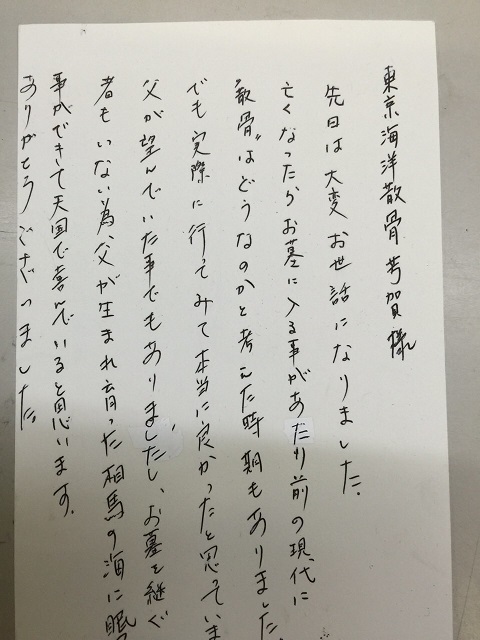 東京海洋散骨 芳賀様
先日は大変お世話になりました。
亡くなったらお墓に入る事があたり前の現代に
"散骨"はどうなのかと考えた時期もありました
でも実際に行ってみて本当に良かったと思っていま
父が望んでいた事でもありましたし、お墓を継ぐ
者もいない為、父が生まれ育った相馬の海に眠
事ができて天国で喜んでいると思います。
ありがとうございました。